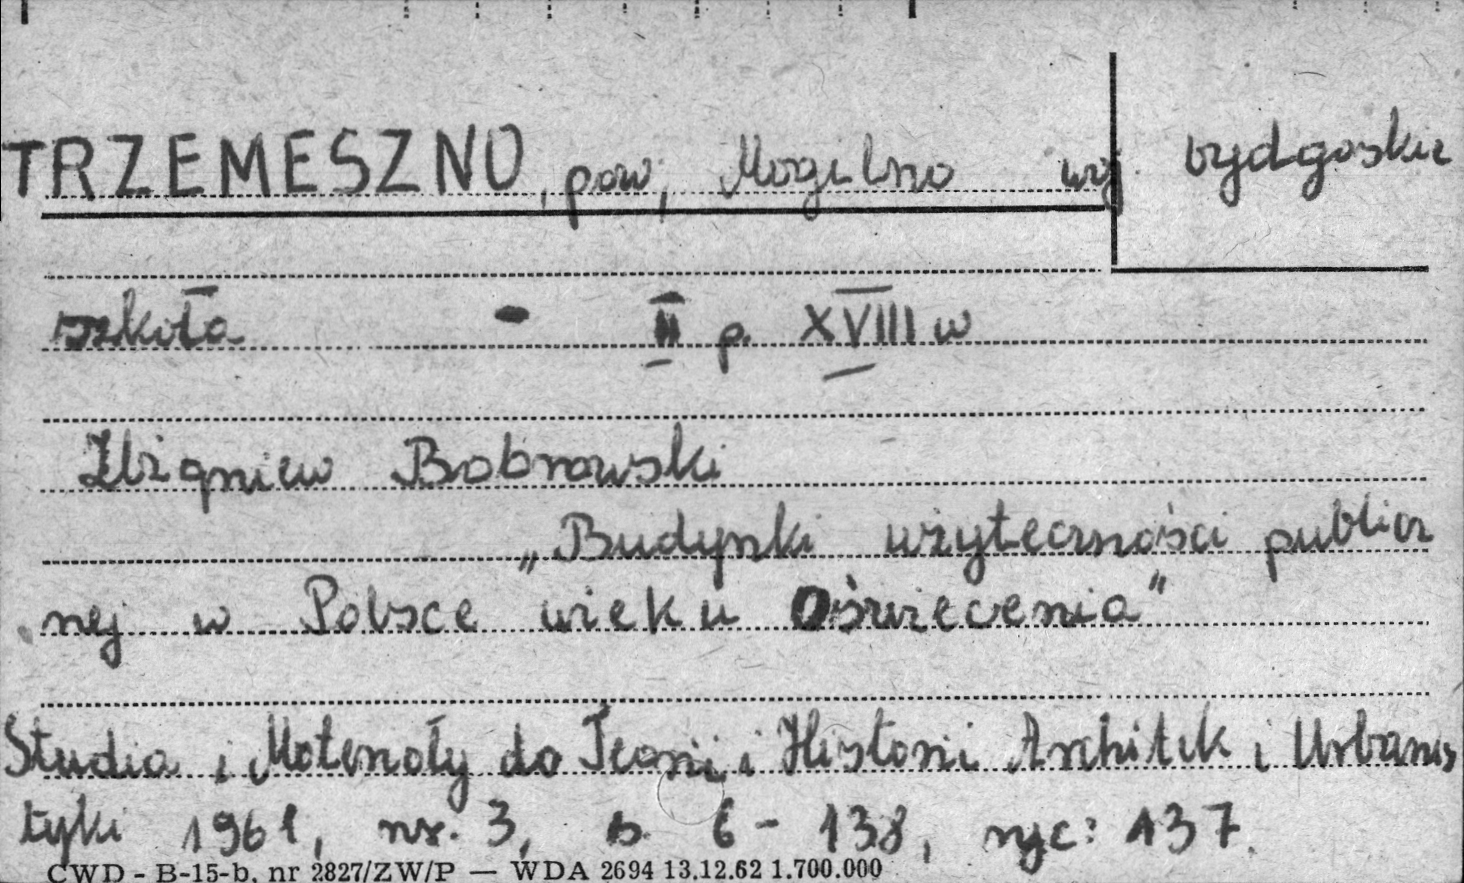 TRZEMESZNO, pow, Mogilno woj. bydgoskie
szkoła - II p. XVIII w
Zbigniew Bobrowski
„Budynki użyteczności publicz
nej w Polsce wieku Oświecenia"
Studia i Materiały do Teorii i Historii Architek i Urbanis
tyki 1961, nr. 3, s. 6 - 138, ryc: 137.
CWD - B-15-b, nr 2827/ZW/P — WDA 2694 13.12.62 1.700.000